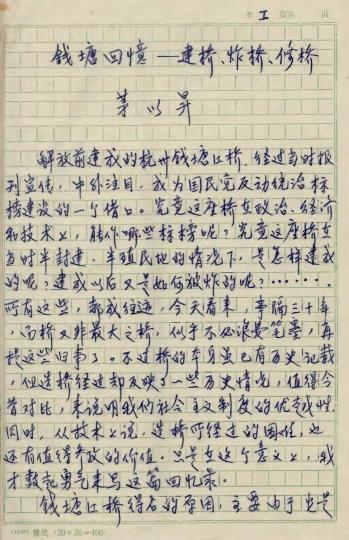 第 1 页共 页
钱塘回憶——建桥、炸桥、修桥
茅以昇
解放前建成的杭州钱塘江桥,经过当时报
刊宣传,中外注目,成为国民党反动统治标
榜建设的一个借口。究竟这座桥在政治、经济
和技术上,能作哪些标榜呢?究竟这座桥在
当时半封建、半殖民地的情况下,是怎样建成
的呢?建成以后又是如何被炸的呢?……
所有这些,都成往迹,今天看来,事隔三十年
,而桥又非最大之桥,似乎不必浪费笔墨,再
提这些旧事了。不过桥的本身虽已有历史记载
,但造桥经过却反映了一些历史情况,值得今
昔对比,来说明我们社会主义制度的优越性。
同时,从技术上说,造桥所经过的困难,也
还有值得参考的价值。只是在这个意义上,我
才鼓起勇气来写这篇回忆录。
钱塘江桥得名的原因,主要由于它是
(20×20=400)